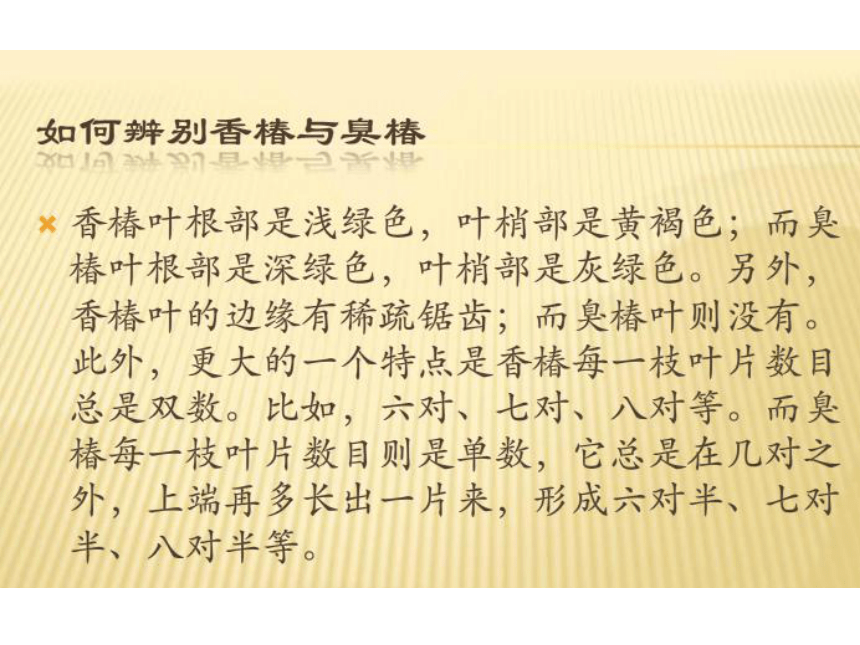 如何辨别香椿与臭椿
香椿叶根部是浅绿色，叶梢部是黄褐色；而臭
椿叶根部是深绿色，叶梢部是灰绿色。另外，
香椿叶的边缘有稀疏锯齿；而臭椿叶则没有。
此外，更大的一个特点是香椿每一枝叶片数目
总是双数。比如，六对、七对、八对等。而臭
椿每一枝叶片数目则是单数，它总是在几对之
外，上端再多长出一片来，形成六对半、七对
半、八对半等。